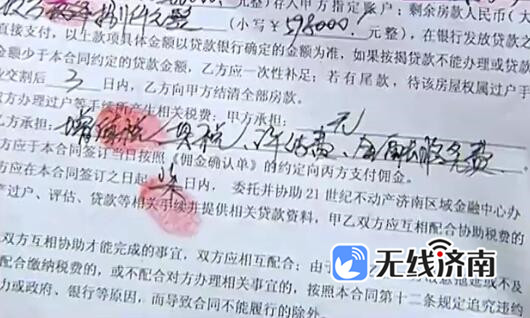 捌仟元整
元整）存入甲方指定账户；剩余房款人民币（大
（小写）598000 元整），在银行发放贷款之
直接支付，以上款项具体金额以贷款银行确定的金额为准，如果按揭贷款不能办理或贷款
金额少于本合同约定的贷款金额，乙方应一次性补足；若有尾款，待该房屋权属过户于
业交割后 3 日内，乙方向甲方结清全部房款。
双方办理过户等手续所产生相关税费：甲方承担： 元
乙方承担：增值税、契税、评估费、
方应于本合同签订当日按照《佣金确认单》的约定向丙方支付佣金。
方应在本合同签订之日起 柒 日内，委托并协助21世纪不动产济南区域金融中心办
产过户、评估、贷款等相关手续并提供相关贷款资料，甲乙双方应相互配合协助税费的
双方互相协助才能完成的事宜，双方应相互配合；由于
配合缴纳税费的，或不配合对方办理相关事宜的，按照本合同第十二条规定追究违约
力或政府、银行等原因，而导致合同不能履行的除外。
无线济南